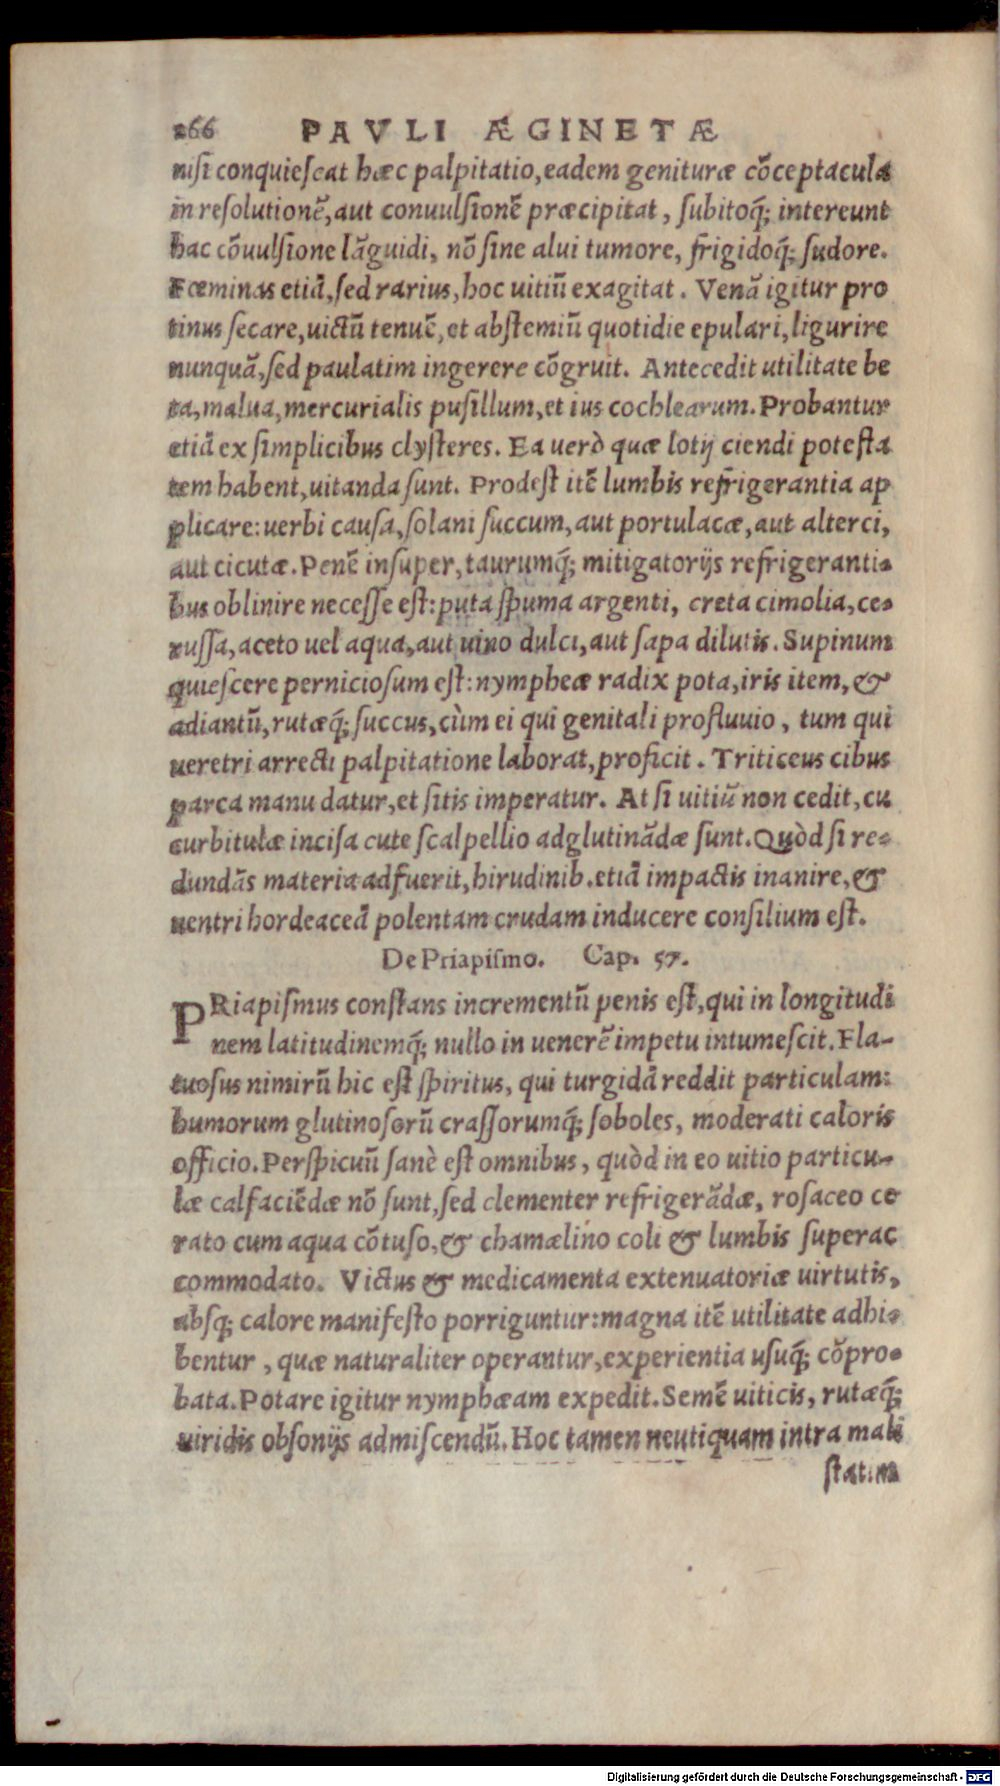 266 PAVLI ÆGINETÆ
niſi conquieſcat hæc palpitatio, eadem genituræ cõceptacula
in reſolutionẽ, aut conuulſionẽ præcipitat, ſubitoq́; intereunt
hac cõuulſione lãguidi, nõ ſine alui tumore, frigidoq́; ſudore.
Fœminas etiã, ſed rarius, hoc uitiũ exagitat. Venã igitur pro
tinus ſecare, uictũ tenuẽ, et abſtemiũ quotidie epulari, ligurire
nunquã, ſed paulatim ingerere cõgruit. Antecedit utilitate be
ta, malua, mercurialis puſillum, et ius cochlearum. Probantur
etiã ex ſimplicibus clyſteres. Ea uerò quæ lotij ciendi poteſta
tem habent, uitanda ſunt. Prodeſt itẽ lumbis refrigerantia ap
plicare: uerbi cauſa, ſolani ſuccum, aut portulacæ, aut alterci,
aut cicutæ. Penẽ inſuper, taurumq́; mitigatorijs refrigeranti-
bus oblinire neceſſe eſt: puta ſpuma argenti, creta cimolia, ce-
ruſſa, aceto uel aqua, aut uino dulci, aut ſapa dilutis. Supinum
quieſcere pernicioſum eſt: nympheæ radix pota, iris item, &
adiantũ, rutæq́; ſuccus, cùm ei qui genitali profluuio, tum qui
ueretri arrecti palpitatione laborat, proficit. Triticeus cibus
parca manu datur, et ſitis imperatur. At ſi uitiũ non cedit, cu
curbitulæ inciſa cute ſcalpellio adglutinãdæ ſunt. Quòd ſi re-
dundãs materia adfuerit, hirudinib. etiã impactis inanire, &
uentri hordeaceã polentam crudam inducere conſilium eſt.
De Priapiſmo. Cap. 57.
PRiapiſmus conſtans incrementũ penis eſt, qui in longitudi
nem latitudinemq́; nullo in uenerẽ impetu intumeſcit. Fla-
tuoſus nimirũ hic eſt ſpiritus, qui turgidã reddit particulam:
humorum glutinoſorũ craſſorumq́; ſoboles, moderati caloris
officio. Perſpicuũ ſanè eſt omnibus, quòd in eo uitio particu-
læ calfaciẽdæ nõ ſunt, ſed clementer refrigerãdæ, roſaceo ce
rato cum aqua cõtuſo, & chamælino coli & lumbis ſuperac
commodato. Victus & medicamenta extenuatoriæ uirtutis,
abſq; calore manifeſto porriguntur: magna itẽ utilitate adhi-
bentur, quæ naturaliter operantur, experientia uſuq́; cõpro-
bata. Potare igitur nymphæam expedit. Semẽ uiticis, rutæq́;
uiridis obſonijs admiſcendũ. Hoc tamen neutiquam intra mali
ſtatim
Digitalisierung gefördert durch die Deutsche Forschungsgemeinschaft - DFG